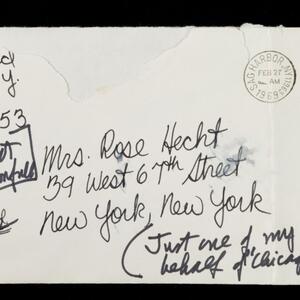 d
Y.
53
SAG HARBOR, NY 11963
FEB 27
AM
1969
Mrs. Rose Hecht
39 West 67th Street
New York, New York
(Just one of my
behalf of "Chicag